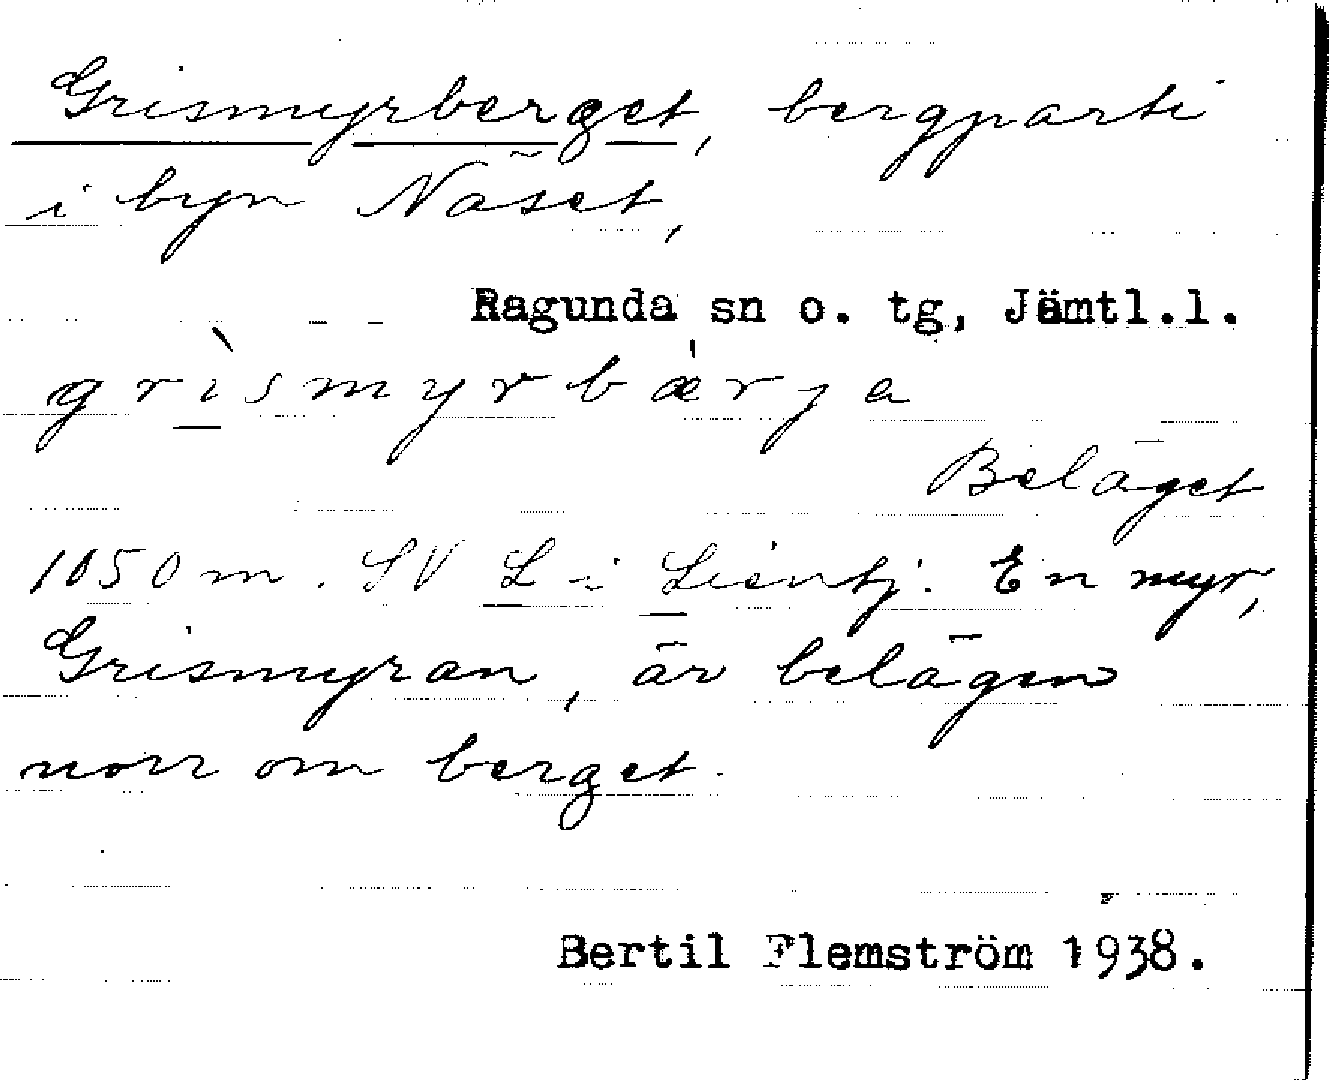 Grismyrberget, bergparti
i byn Näset,
Ragunda sn o. tg, Jämtl.l.
grìsmyrbærja
Beläget
1050 m. SV L i Lientj. En myr,
Grismyran, är belägen
norr om berget.
Bertil Flemström 1938.